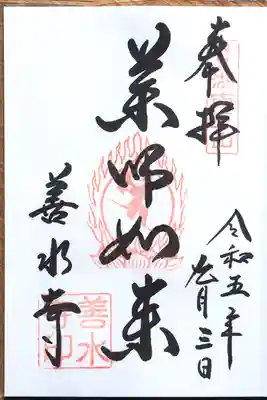 奉拝
令和五年
九月三日
薬師如来
善水寺
善水
寺印